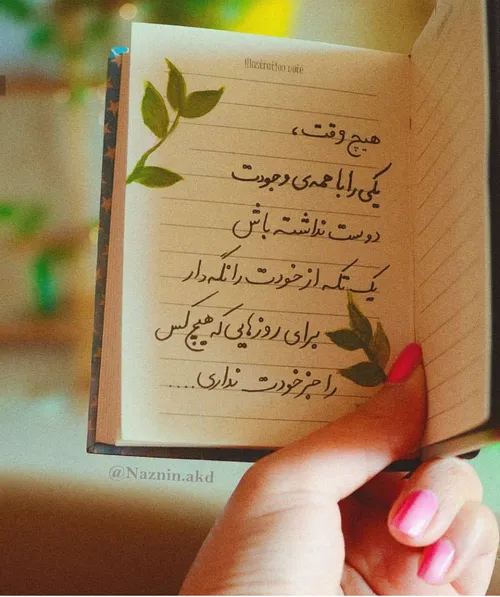 Illustration note
هیچ وقت،
یکی را با همه‌ی وجودت
دوست نداشته باش
یک تکه از خودت را نگه دار
برای روزهایی که هیچ کس
را جز خودت نداری....
@Naznin.akd